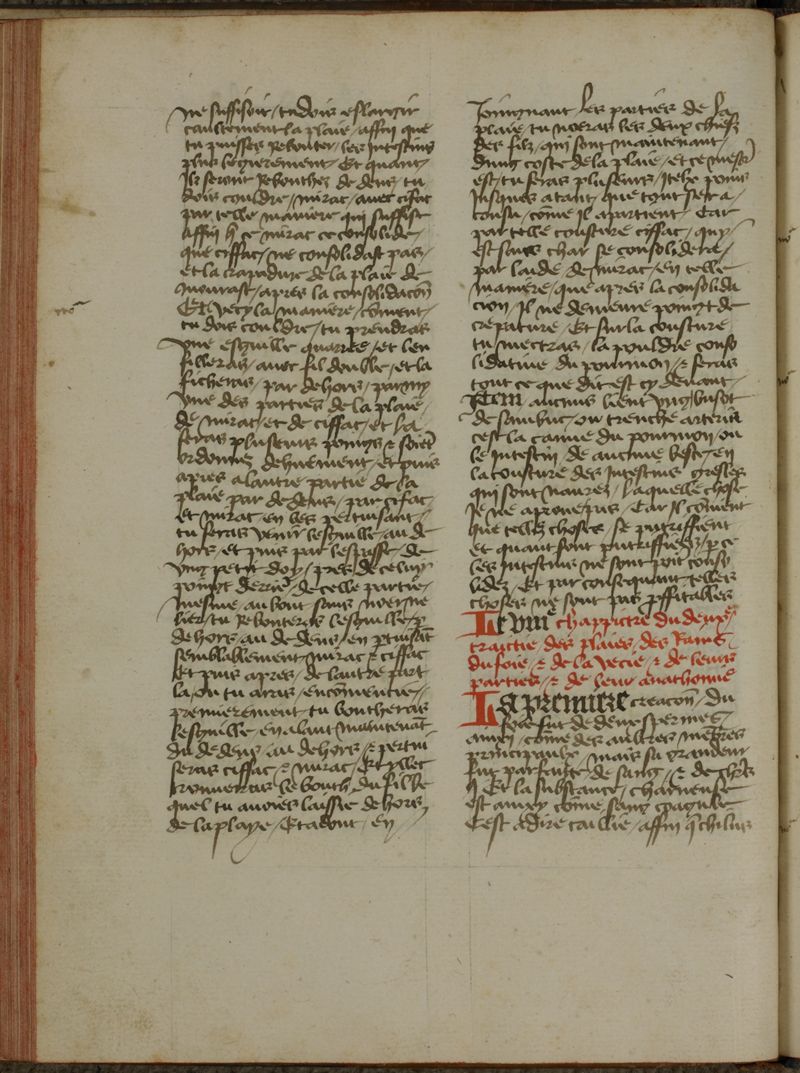 ne suffisoit / tu dois eslargir
cautement la plaie / affin que
tu puisses rebouter / les intestins
plus legierement / Et quant /
Ilz seront reboutez dedens / tu
dois couldre / mirac / avec cifac
par telle maniere qui suffist
affin q̃ ce mirac ce consolide /
que ciffac / ne consolidast pas /
et la crapadure de la plaie de
mourast / apres la consolidacõn
Et vecy la maniere / cõment /
tu dois couldre / tu prendras
vne esguille quarree / et len
filleras / avec fil double / et la
ficheras / par dehors / parmy
vne des parties de la plaie /
de mirac / et de ciffac / et la
feras plusieurs poings & soiẽt
ordonnez deuement / et puis
apres a lautre partie de la
plaie par dedens / par cifac /
et mirac / en les pertuisant /
tu feras venir lesguille / au de
hors / et puis par lespesse / de
vng petit doy / pres de celuy
point derriẽ / de celle partie /
mesme / au bout sans moienne
lier / tu rebouteras lesguille / p
dehors / au dedens / en ptuisãt
semblablement mirac & ciffac
Et puis apres / de lautre part
la / ou tu auras / encõmencie /
premierement / tu bouteras
lesguille / en alant maintenãt
du dedens / au dehors / & pertui
seras ciffac / & mirac / Et illec
trouueras le bouth du fil / le
quel tu auoies laissie dehors /
de la playe / Et adont / en
Joingnant les parties de la
plaie / tu noeras les deux chiefz
des filz / qui sont maintenant /
dung coste de la plaie / et ce
est / tu feras plusieurs / Itelz poins
Jusques atant / que tout sera /
cousu / cõme il apartient / Car
par telle cousture ciffac / qui /
est sans char se consolidera /
par laide / de mirac / en telle
maniere / que apres la consolida
cion / Il ne demeure poingt de
crepature / Et sur la cousture
tu mectras / la pouldre conso
lidatiue du poumon / & feras
tout ce que dit est cy deuant /
Item aucuns lient vng busot
de sambuc / ou trenche arteria
cest la canne du poumon / ou
le intestin / de aucune beste / en
la cousture des intestins gresles
qui sont naurez / laquelle chose
Je ne apreuue pas / Car Il cõment
que telles choses / se putriffient
et quant sont putriffiez / p ce
les intestins ne sont poit conso
lidez / Et par consequant telles
choses ne sont pas pffitables
Le viiie chappictre du deuxe
traictie des plaies / des Rains
du foie / & de la vecie / & de leurs
parties / & de leur anathomie
La premiere creacõn / du
foie fut de deux spermes /
aussi / cõme des aultres mẽbres
principaulx / mais sa grandeur
fut parfaite de sang / &
Et la substance / charneuse
est aussy cõme sang
Cest adire caillie / affin q̃ chilus